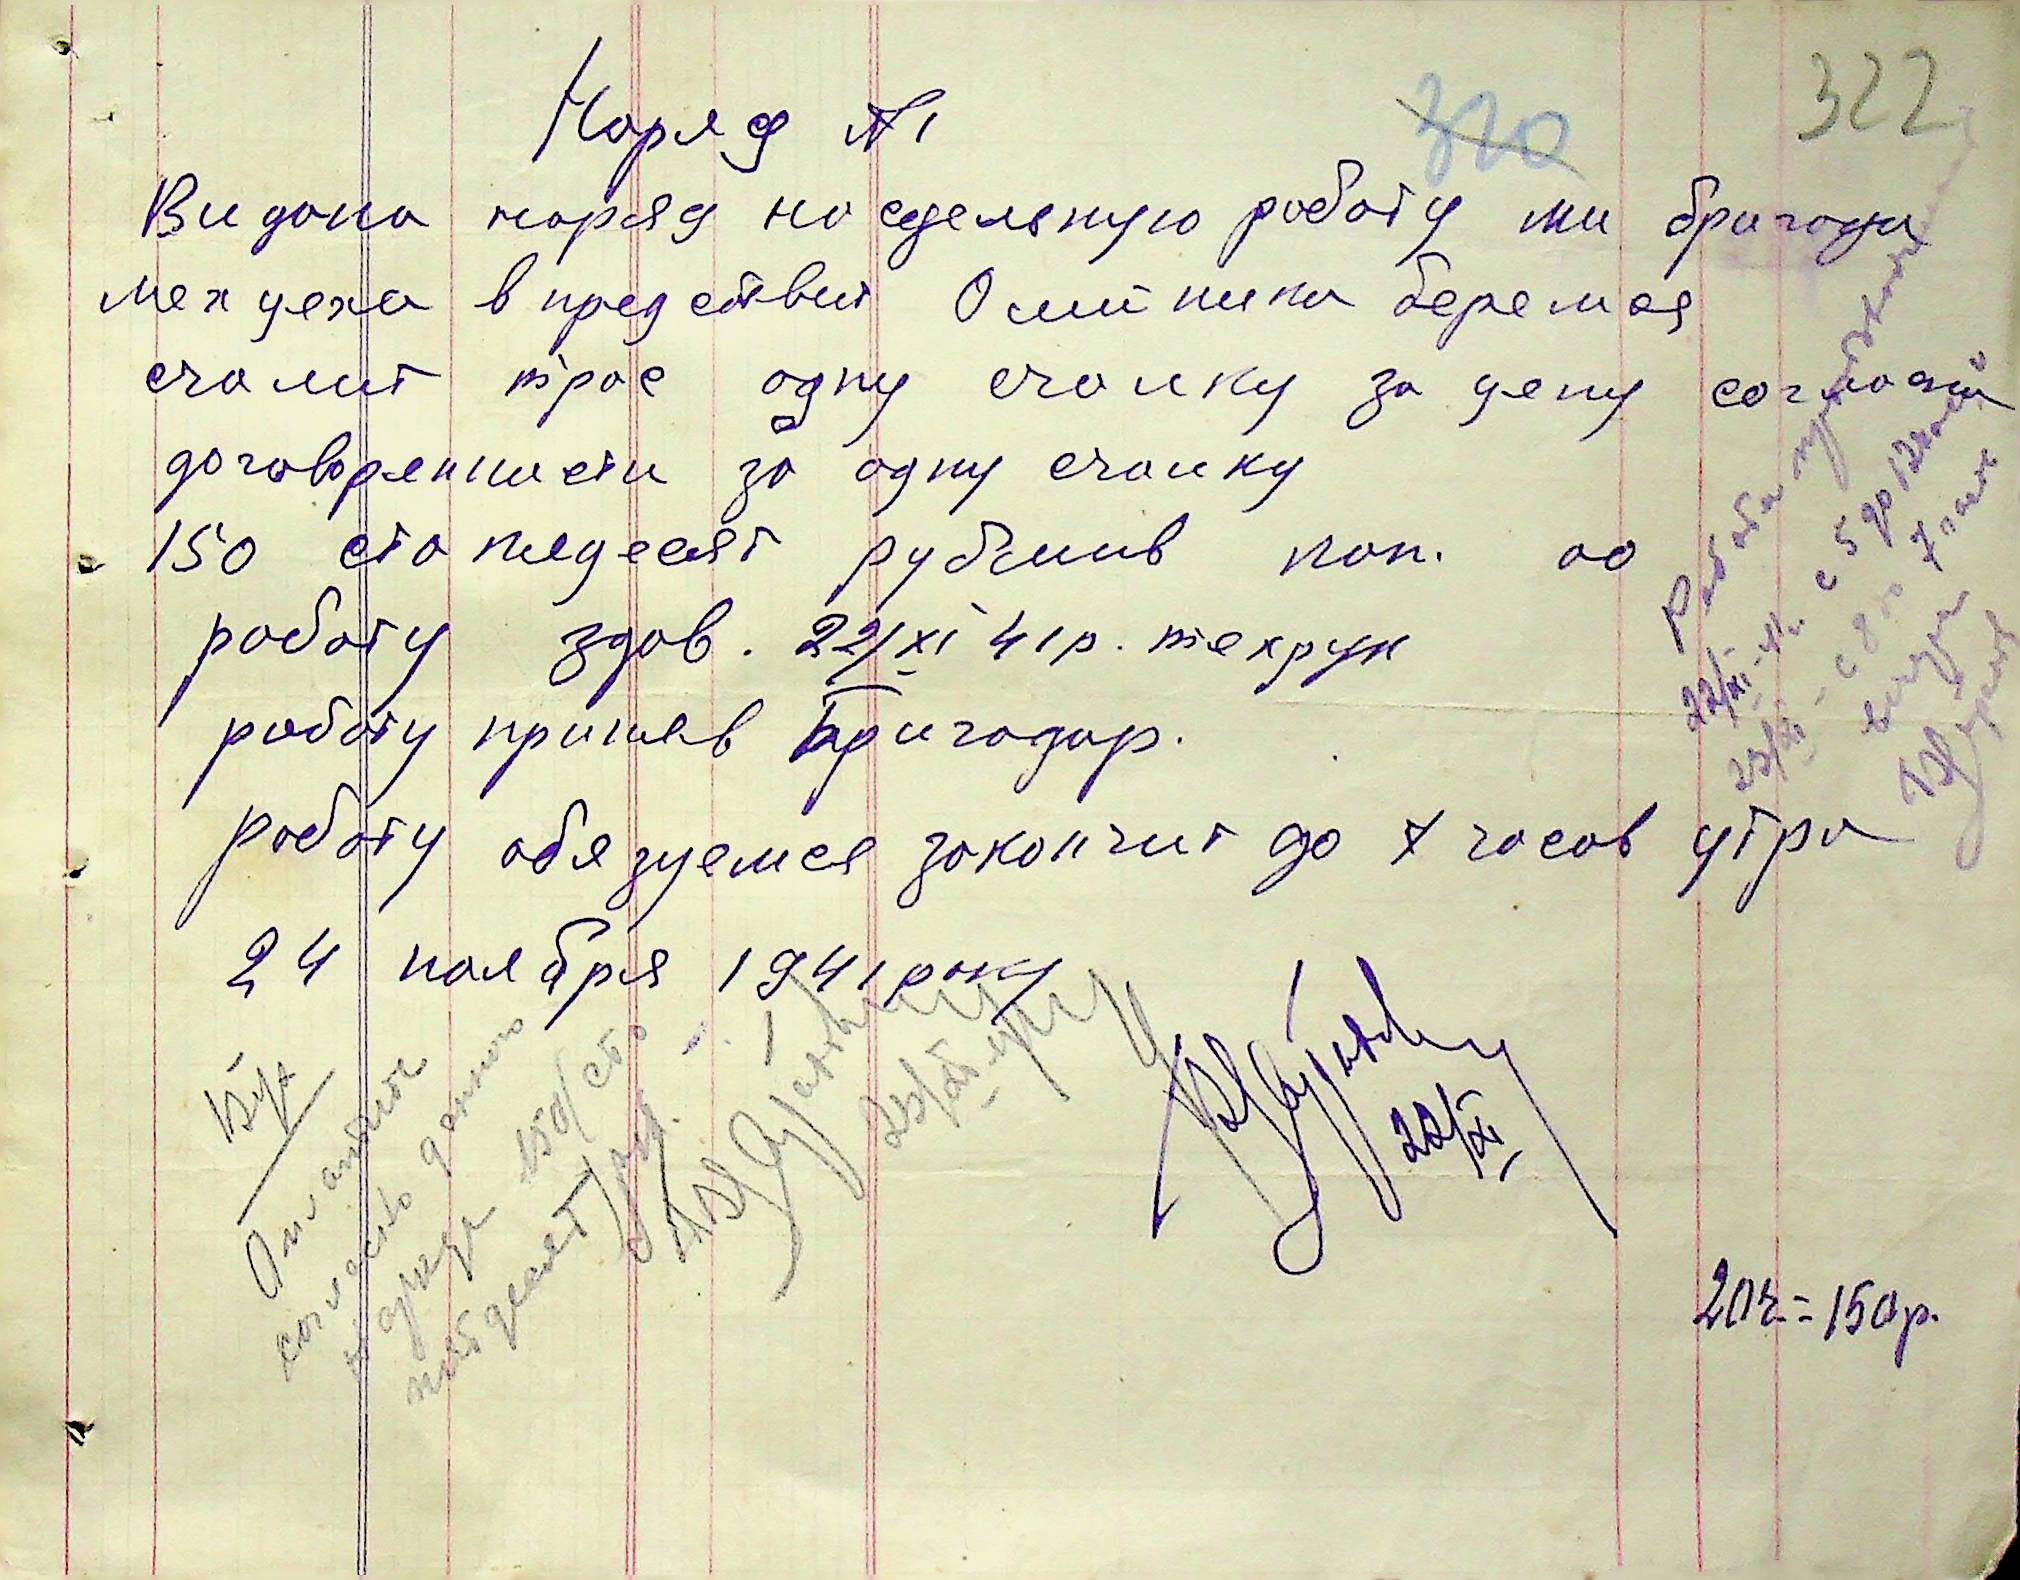 322
320
Наряд №1
Видана наряд на сдельную работу ми бригади
мех цеха в предствит Олійника беремся
счалит трос одну счалку за цену согласни
договоренности за одну счалку
150 сто пядесят рублив коп. 00
работу здав. 22/XI 41р. техрук
работу приняв Бригадар.
работу обязуемся закончит до 7 часов утра
24 ноября 1941 року
22/XI
Работа
22/XI-41 с 5 до 12
23/XI - с 8 7
Бух
Оплатите
согласно данного
наряда 150/сто
пятдесят/руб.
23/XI
20ч = 150р.